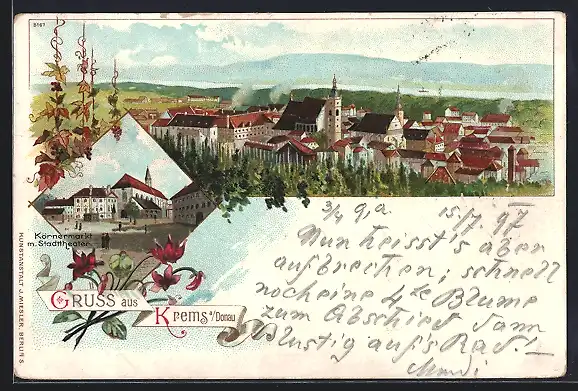 8167
Körnermarkt
m. Stadttheater
GRUSS aus
Krems a/Donau
KUNSTANSTALT J. MIESLER, BERLIN S.
3/4 9, a. 15./7. 97
Nun heisst's aber
aufbrechen; schnell
noch eine 4te Blume
zum Abschied dann
lustig auf's Rad! —